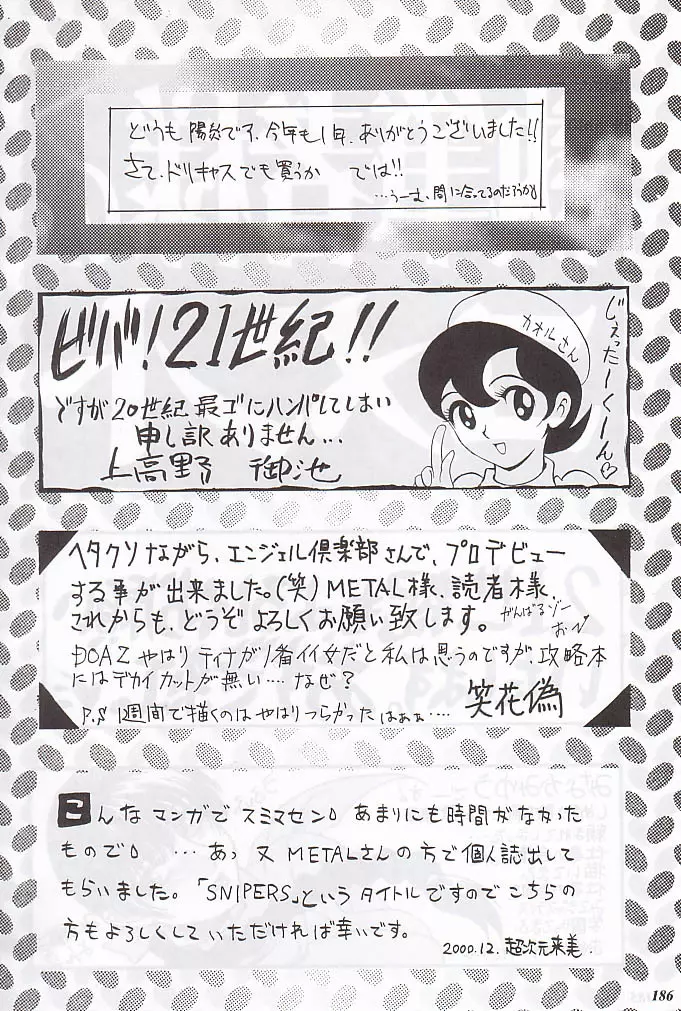 どうも陽炎です、今年も1年、ありがとうございました!!
さて、ドリキャスでも買うか では!!
…うーむ、間に合ってるのだろうか
ビバ!21世紀!!
ですが20世紀最ゴにハンパしてしまい
申し訳ありません...
上高野 御池
カオルさん
じぇったーくーん♡
ヘタクソながら、エンジェル倶楽部さんで、プロデビュー
する事が出来ました。(笑)METAL様、読者様、
これからも、どうぞよろしくお願い致します。
がんばるゾー
おーべ
DOA2 やはりティナが1番イイ女だと私は思うのですが、攻略本
にはデカイカットが無い…. なぜ?
笑花偽
P.S 1週間で描くのはやはりつらかった はぁぁ….
こんなマンガでスミマセン。あまりにも時間がなかった
もので。 …あっ又METALさんの方で個人誌出して
もらいました。「SNIPERS」というタイトルですのでこちらの
方もよろしくしていただければ幸いです。
2000.12. 超次元来美.
186